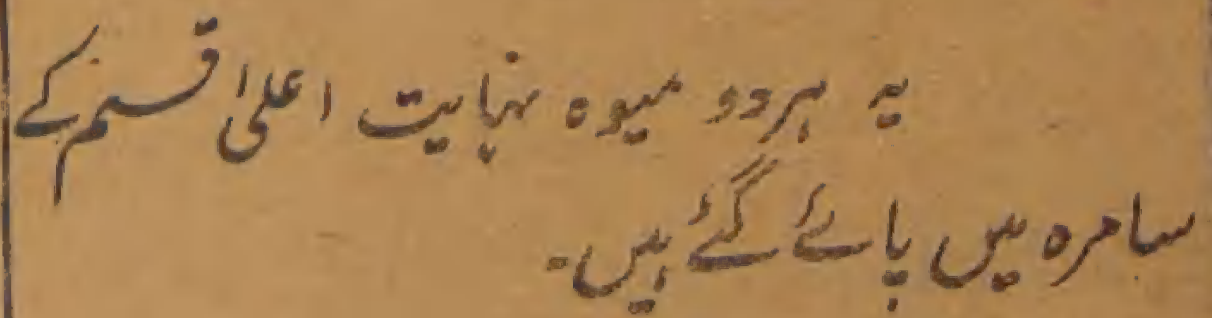 یہ ہردو میوہ نہایت اعلیٰ قسم کے
سامرہ میں پائے گئے ہیں۔